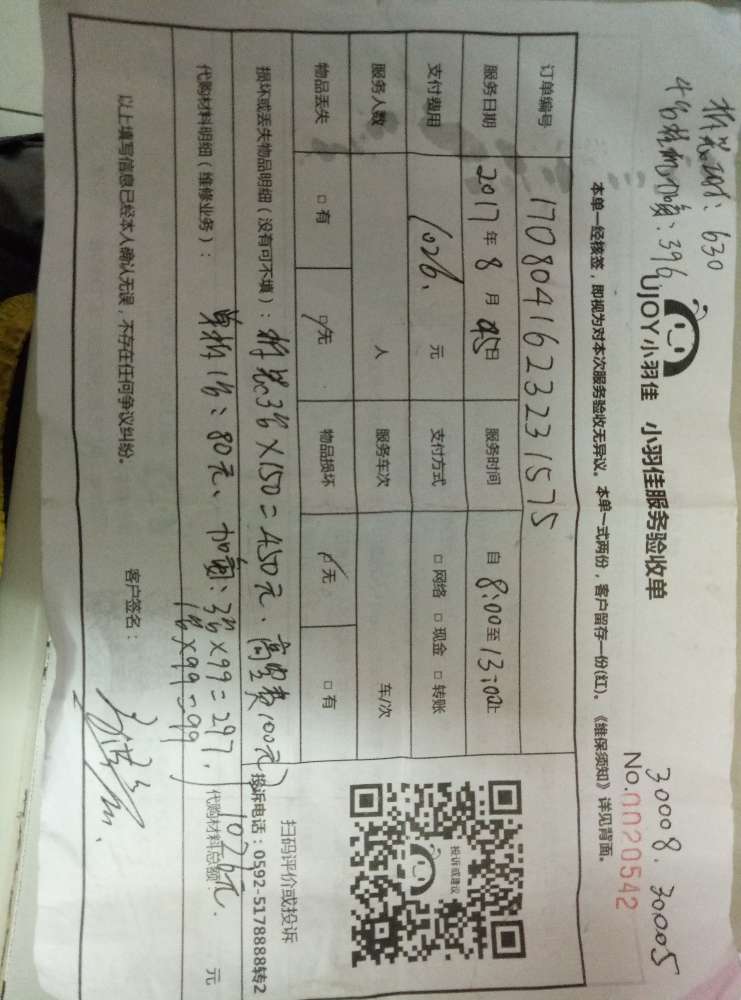 拆装3台: 630
4台拆机加氟: 396
30008. 30005
UJOY小羽佳 小羽佳服务验收单
No.0020542
本单一经核签，即视为对本次服务验收无异议。本单一式两份，客户留存一份(红)。《维保须知》详见背面。
订单编号 1708041623231575
服务日期 2017年8月45日 服务时间 自8:00至13:00止
支付费用 1026. 元 支付方式 □网络 □现金 □转账
服务人数 人 服务车次 车/次
物品丢失 □有 □无 物品损坏 □无 □有
投诉或建议
扫码评价或投诉
投诉电话：0592-5178888转2
损坏或丢失物品明细（没有可不填）：拆装3台×150=450元. 高空费100元
代购材料明细（维修业务）： 单拆1台: 80元、加氟: 3台×99=297.
1台×99=99
1026元.
代购材料总额： 元
以上填写信息已经本人确认无误，不存在任何争议纠纷。
客户签名：